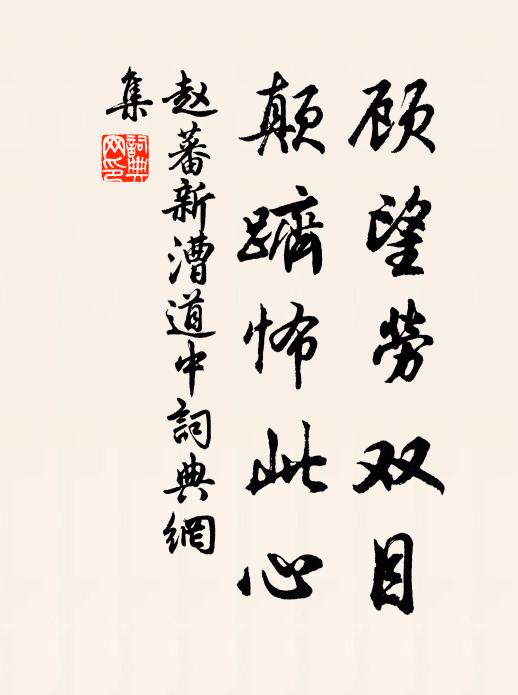 顾望劳双目
颠跻怖此心
赵蕃新漕道中詞典網
集
詞典
网印